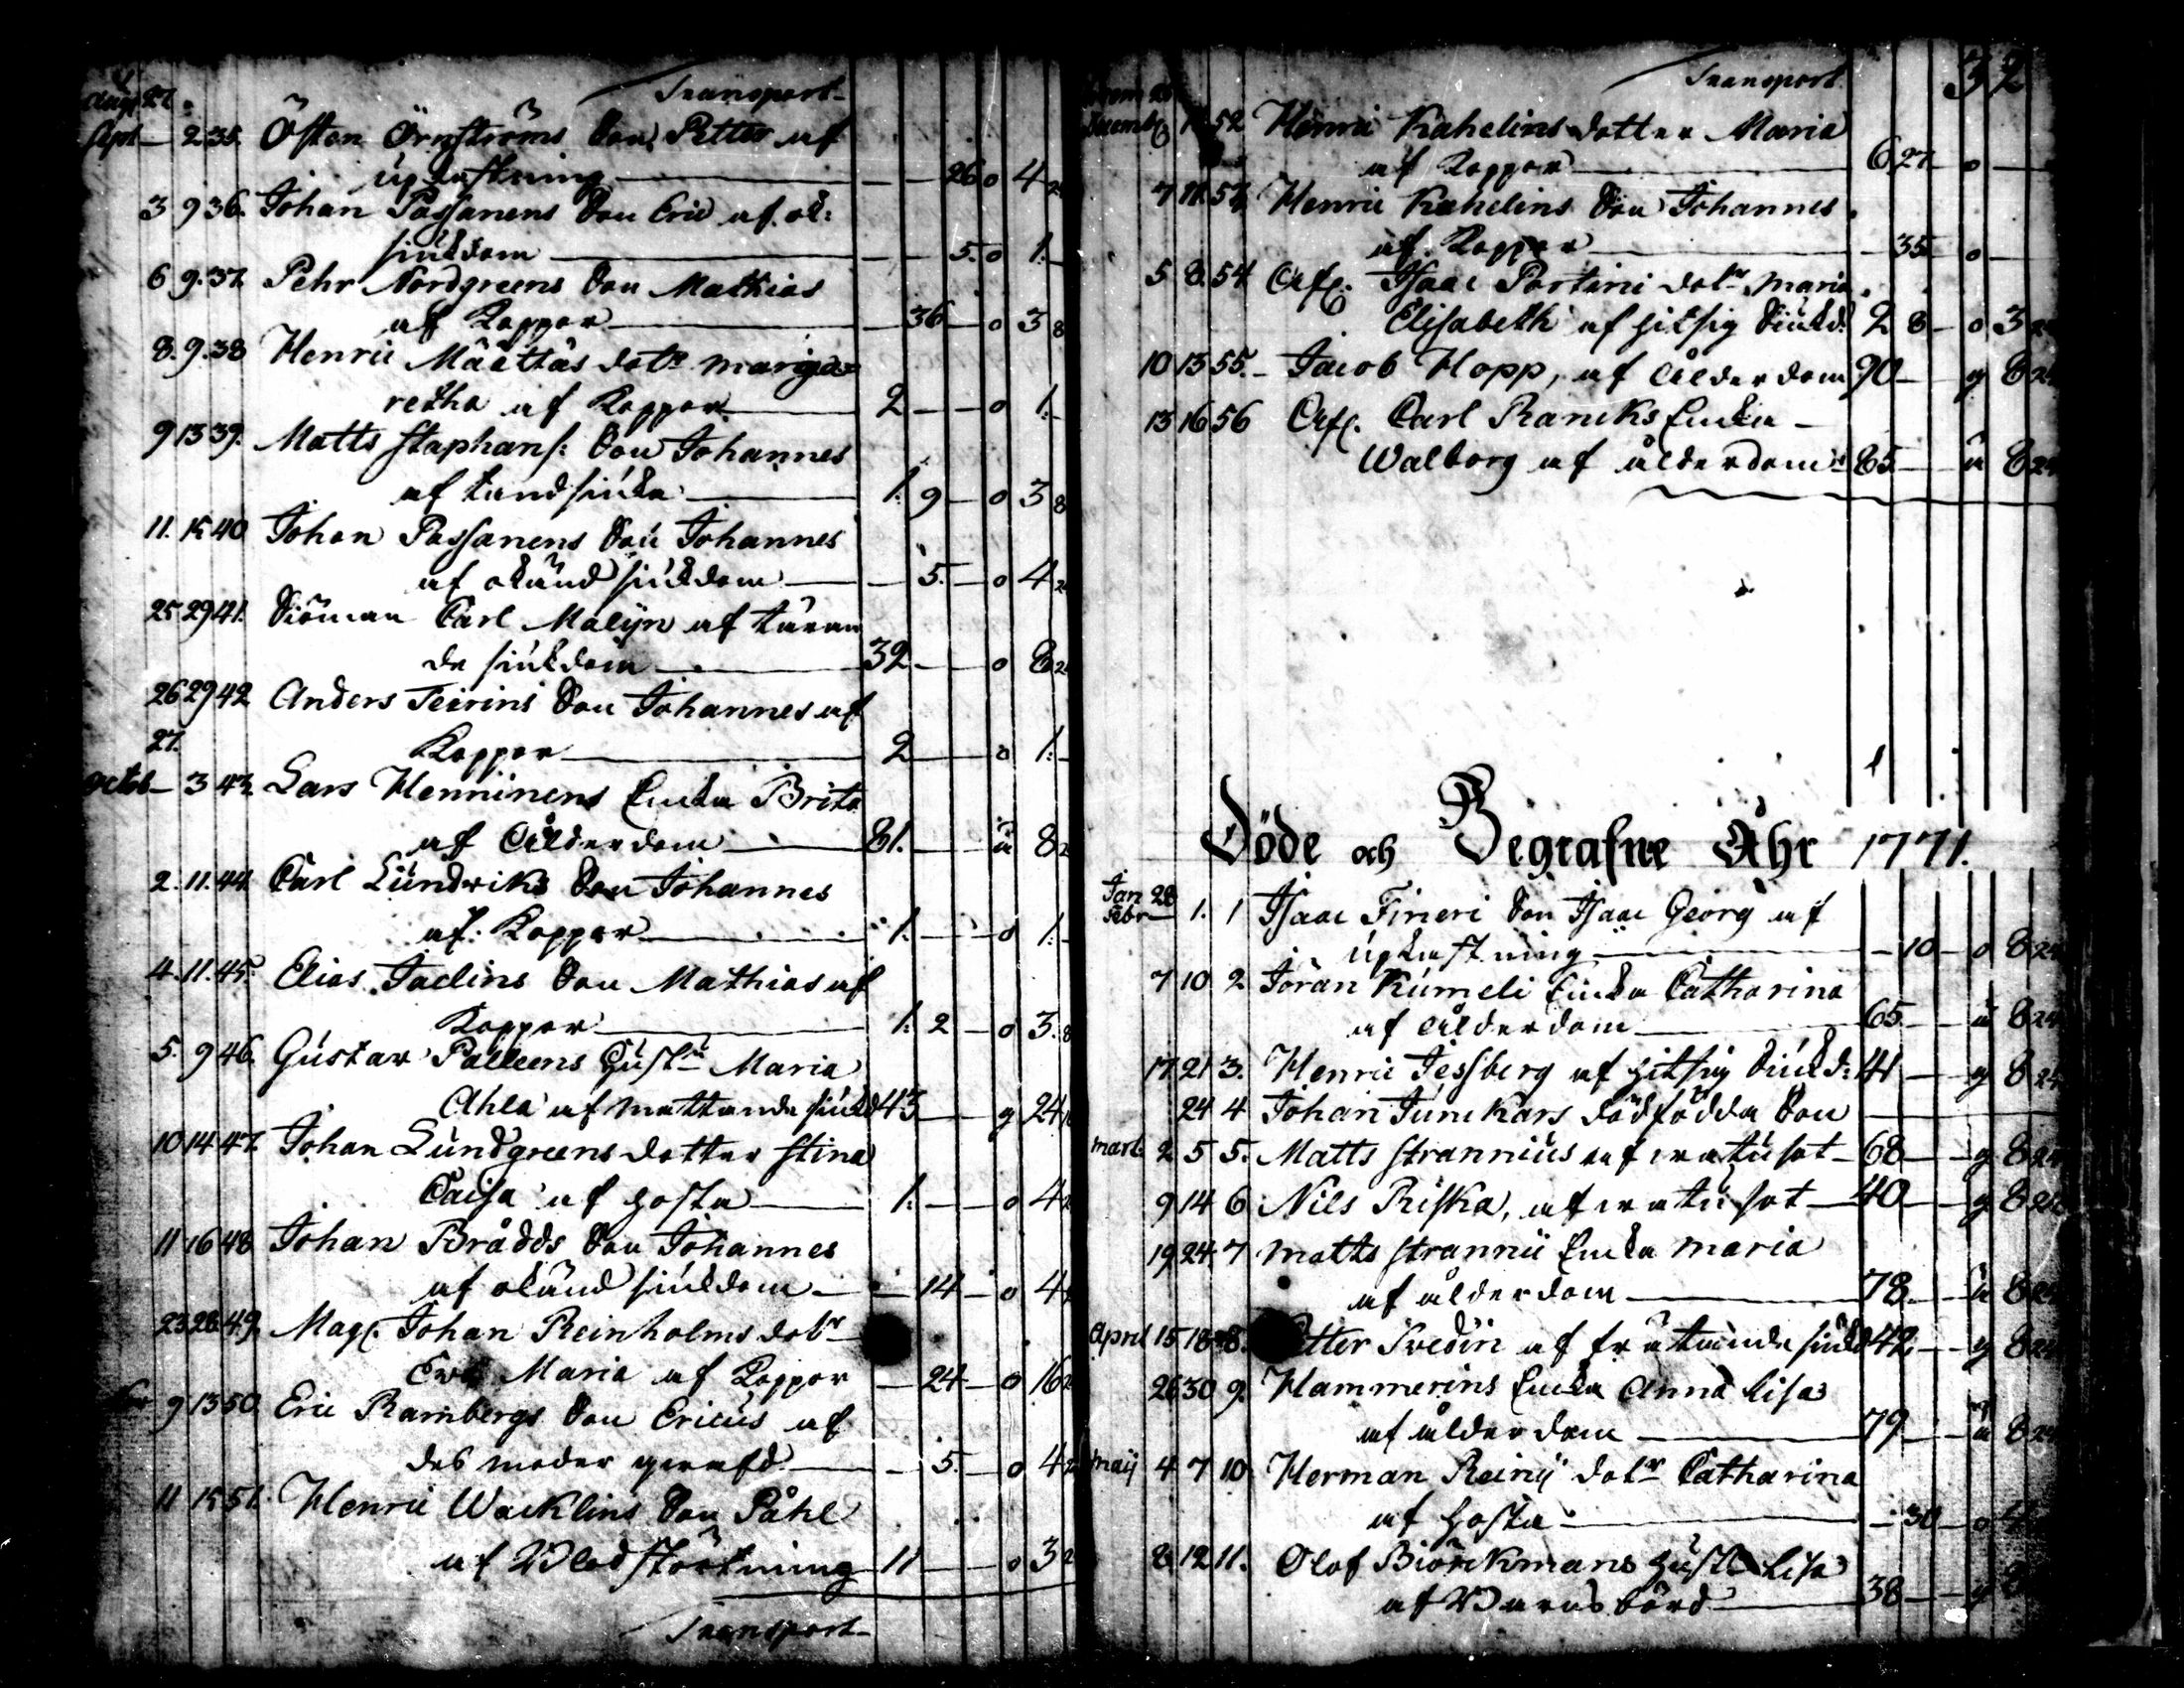 Transport
Aug 27
Sept 2 35. Östen Örnströms Son Petter af
upkastning 26 o 4
3 9 36. Johan Passanens Son Eric af ok:
siukdom 5. o 1.
6 9. 37. Pehr Nordgreens Son Mathias
af Koppor 36 o 3 8
8. 9. 38 Henric Määttäs dotr marga=
retha af Koppor 2 o 1.
9 13 39. Matts Staphans: Son Johannes
af tandsiuka 1. 9 o 3 8
11. 15 40 Johan Passanens Son Johannes
af okänd siukdom 5. o 4
25 29 41. Siöman Carl Malijn af täran
de siukdom 32 o 8
26 29 42 Anders Teirins Son Johannes af
27. Koppor 2 o 1.
octob 3 43. Lars Henninens Enka Brita
af Ålderdom 81. ä 8
2. 11. 44. Carl Lündriks Son Johannes
af Koppor 1. o 1.
4. 11. 45. Elias Jaelins Son Mathias af
Koppor 1. 2 o 3. 8
5. 9 46. Gustav Palleens Hustru Maria
Ahla af mattande siukd 43 g 24
10 14 47. Johan Lundgreens dotter Stina
Caisa af hosta 1. o 4
11 16 48 Johan Brådds Son Johannes
af okänd siukdom 14 o 4
23 28 49. Mag. Johan Reinholms dotr
Eva Maria af Koppor 24 o 16
9 13 50. Eric Rambergs Son Ericus af
des moder qwafd 5. o 4
11 15 51. Henric Wacklins Son Påhl
af Blodstörtning 11 o 3
Transport

Transport 32
Decemb 11 52 Henric Kahelins dotter Maria
af Koppor 6 27 o
7 11 53 Henric Kahelins Son Johannes
af Koppor 35 o
5 8 54 Isaac Portini dotr Maria
Elisabeth af hitsig Siukd: 2 8 o 3 24
10 13 55. Jacob Hopp, af Ålderdom 90 g 8 24
13 16 56 Carl Rancks Enka
Walborg af ålderdom 85 ä 8 24
Döde och Begrafne Åhr 1771.
Jan 28
Febr 1. 1 Isaac Fineri Son Isaac Georg af
upkastning 10 o 8 24
7 10 2 Jöran Kümeli Enka Catharina
af ålderdom 65 ä 8 24
17 21 3. Henric Jessberg af hitsig Siukd: 41 g 8 24
24 4 Johan Junckars dödfödda Son
mart. 2 5 5. Matts Strannius af watusot 68 g 8 24
9 14 6 Nils Riska, af watusot 40 g 8 24
19 24 7 Matts Strannii Enka Maria
af ålderdom 78 ä 8 24
April 15 18 8. Petter Svedin af frätande siukd 42 g 8 24
26 30 9. Hammerins Enka Anna Lisa
af ålderdom 79 ä 8 24
maij 4 7 10 Herman Reinij dotr Catharina
af hosta 30 o
8 12 11. Olof Biörckmans Hustr Lisa
af Barnsbörd 38 g